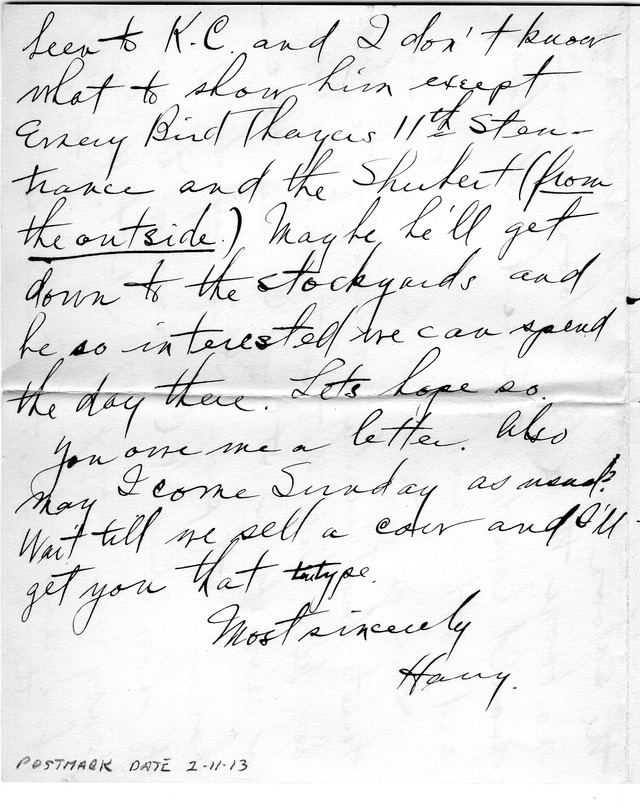 been to K.C. and I don't know
what to show him except
Emery Bird Thayers 11th St en-
trance and the Shubert (from
the outside.) Maybe he'll get
down to the stockyards and
be so interested we can spend
the day there. Lets hope so.
You owe me a letter. Also
may I come Sunday as usual?
Wait till we sell a cow and I'll
get you that
Most sincerely
Harry.
POSTMARK DATE 2-11-13